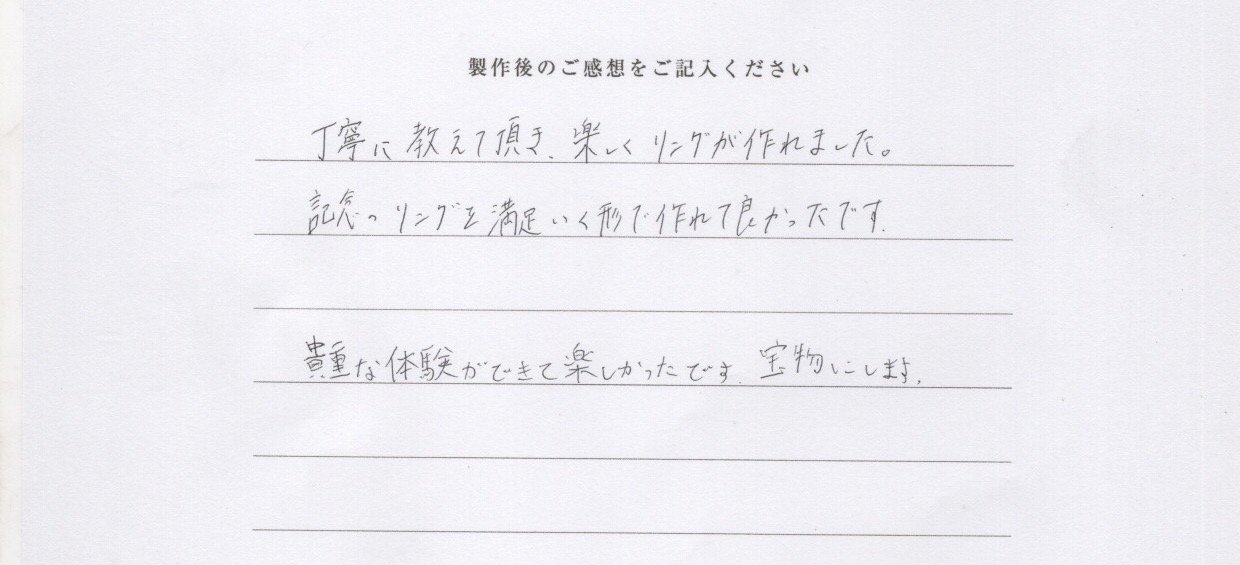 製作後のご感想をご記入ください
丁寧に教えて頂き、楽しくリングが作れました。
記念のリングを満足いく形で作れて良かったです.
貴重な体験ができて楽しかったです. 宝物にします.